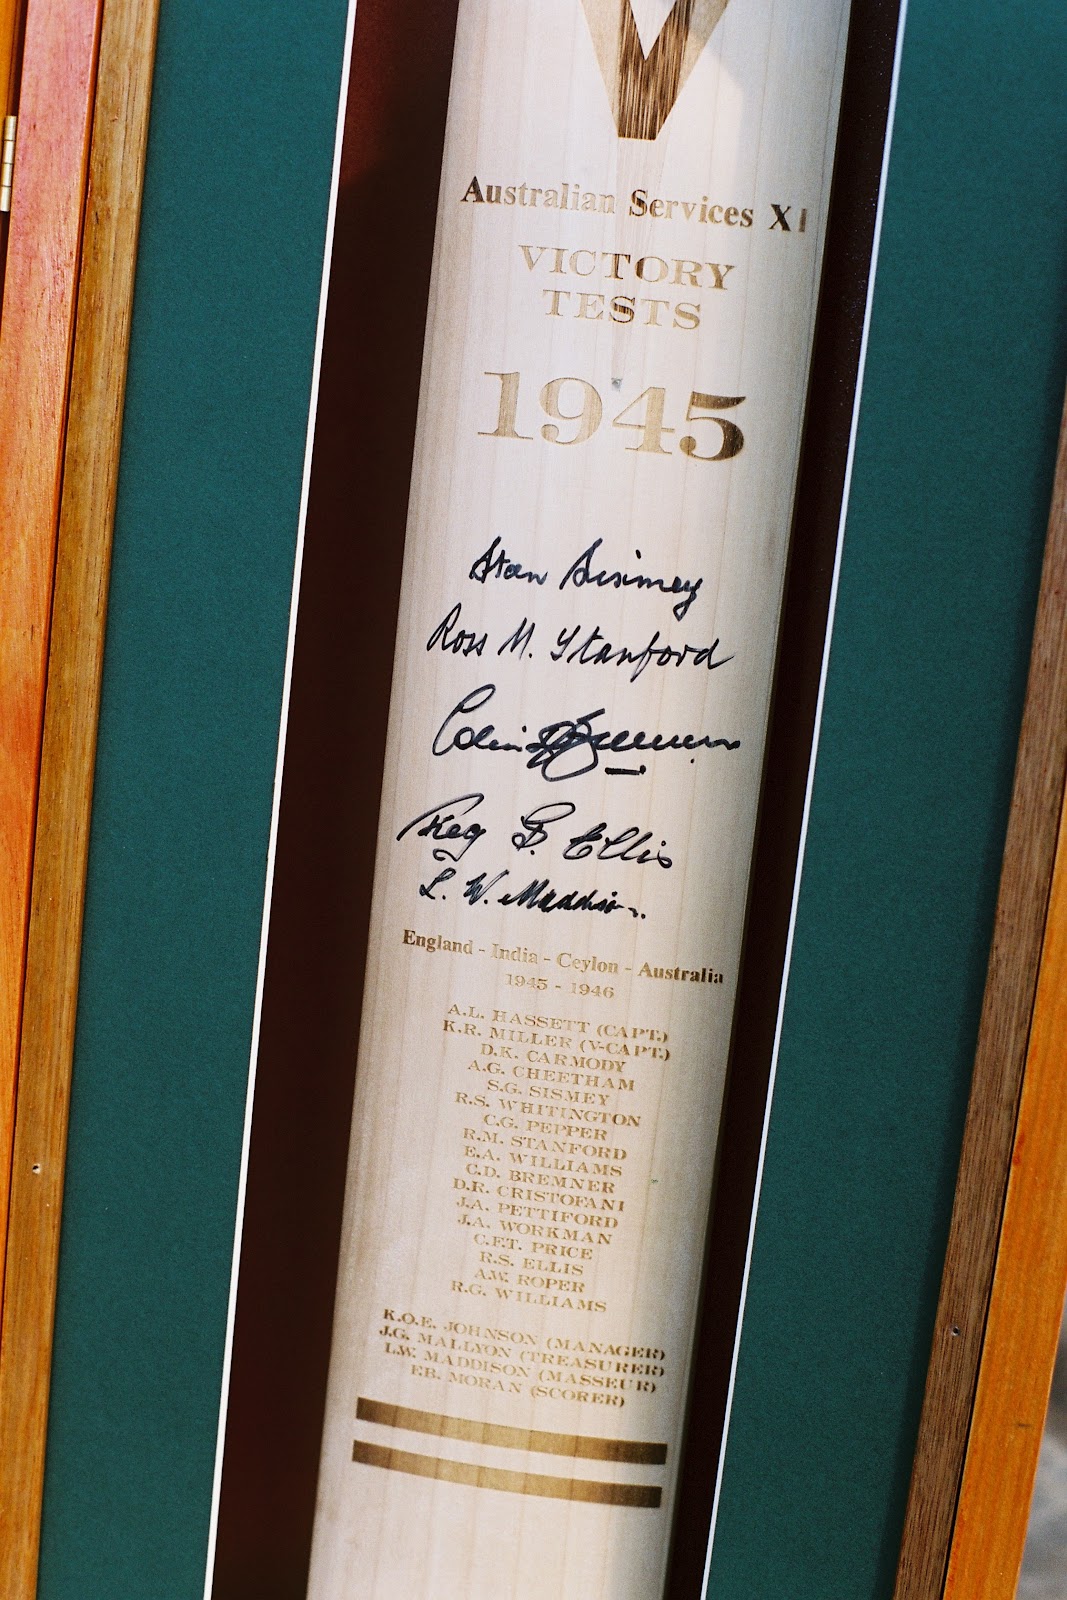 V
Australian Services XI
VICTORY
TESTS
1945
Stan Sismey
Ross M. Stanford
Colin Bremner
Reg S. Ellis
L. W. Maddison.
England - India - Ceylon - Australia
1945 - 1946
A.L. HASSETT (CAPT.)
K.R. MILLER (V-CAPT.)
D.K. CARMODY
A.G. CHEETHAM
S.G. SISMEY
R.S. WHITINGTON
C.G. PEPPER
R.M. STANFORD
E.A. WILLIAMS
C.D. BREMNER
D.R. CRISTOFANI
J.A. PETTIFORD
J.A. WORKMAN
C.F.T. PRICE
R.S. ELLIS
A.W. ROPER
R.G. WILLIAMS
K.O.E. JOHNSON (MANAGER)
J.G. MALLYON (TREASURER)
L.W. MADDISON (MASSEUR)
F.B. MORAN (SCORER)